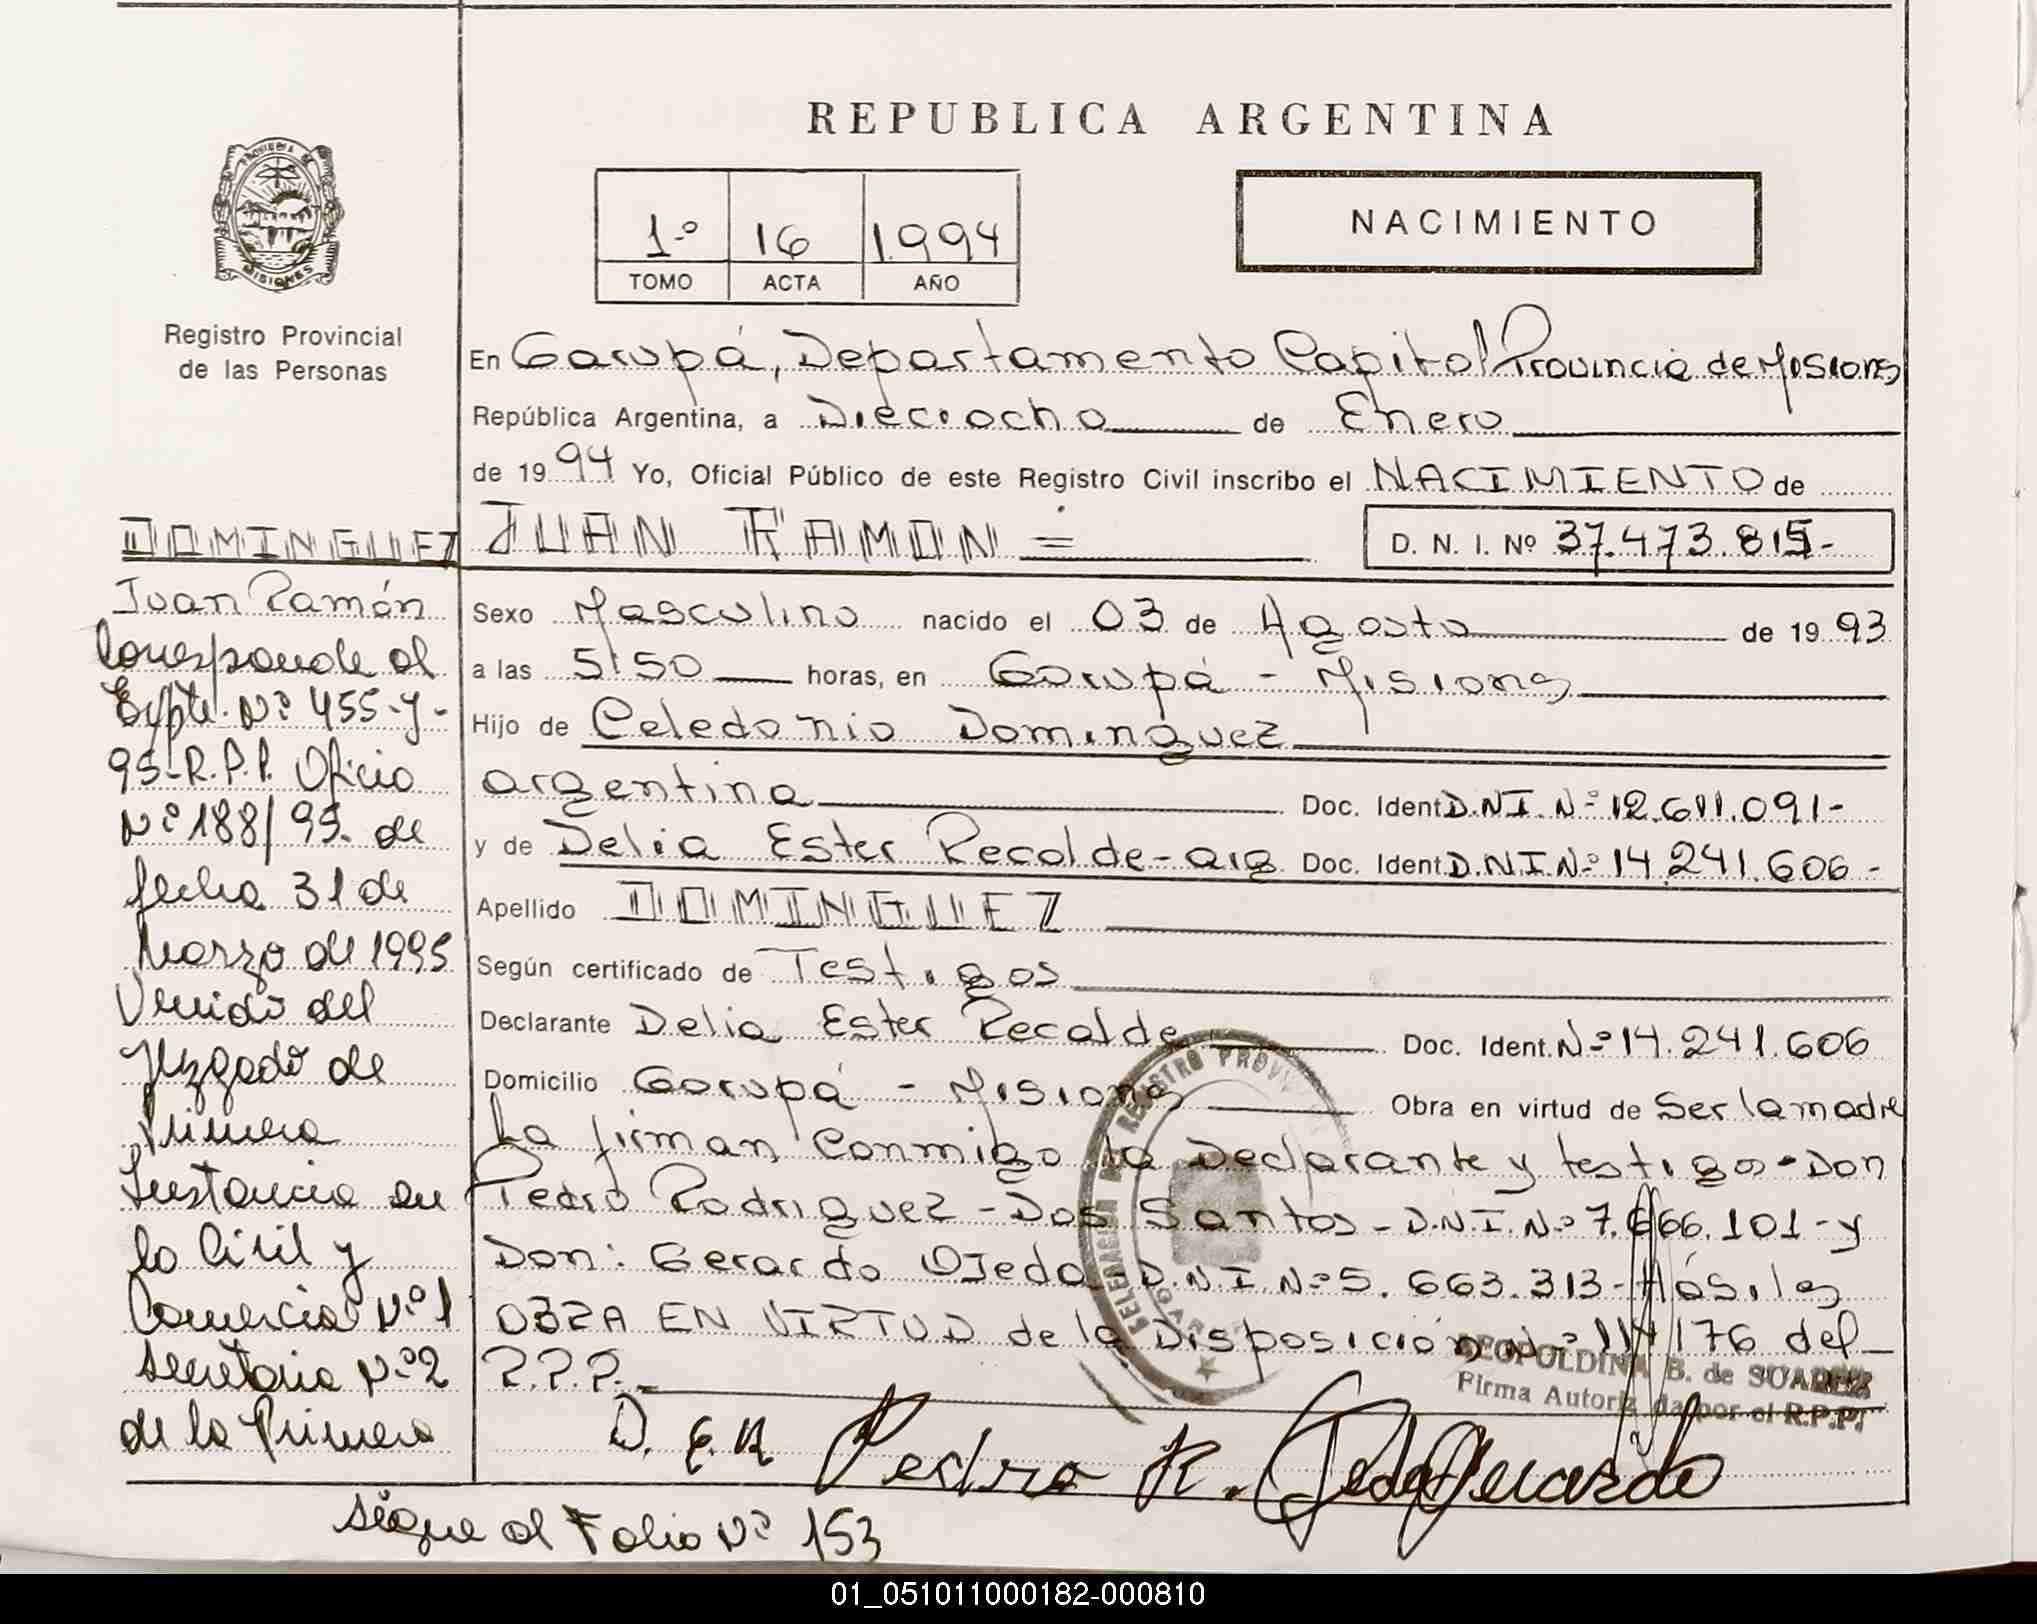 REPUBLICA ARGENTINA
PROVINCIA DE
MISIONES
1º 16 1994
TOMO ACTA AÑO
NACIMIENTO
Registro Provincial
de las Personas
En Garupá, Departamento Capital Provincia de Misiones
República Argentina, a Dieciocho de Enero
de 1994 Yo, Oficial Público de este Registro Civil inscribo el NACIMIENTO de
JUAN RAMON =
D. N. I. Nº 37.473.815-
Sexo Masculino nacido el 03 de Agosto de 1993
a las 5:50 horas, en Garupá - Misiones
Hijo de Celedonio Dominguez
argentina Doc. Ident. D.N.I. Nº 12.611.091-
y de Delia Ester Recalde-arg Doc. Ident. D.N.I.Nº 14.241.606-
Apellido DOMINGUEZ
Según certificado de Testigos
Declarante Delia Ester Recalde Doc. Ident. Nº 14.241.606
Domicilio Garupá - Misiones Obra en virtud de Ser la madre
La firman Conmigo la Declarante y testigos-Don
Pedro Rodriguez - Dos Santos - D.N.I. Nº 7.666.101-y
Don: Gerardo Ojeda D.N.I. Nº 5.663.313-Hábiles
OBRA EN VIRTUD de la Disposición Nº 114/76 del
R.P.P.
LEOPOLDINA B. de SUAREZ
Firma Autorizada por el R.P.P.
D. E. R Pedro R. Ojeda Gerardo
DOMINGUEZ
Juan Ramón
Corresponde al
Expte. Nº 455-y-
95-R.P.P. Oficio
Nº 188/95. de
fecha 31 de
Marzo de 1995
Venido del
Juzgado de
Primera
Instancia en
lo Civil y
Comercial Nº 1
Secretaria Nº 2
de la Primera
Sigue al Folio Nº 153
01_051011000182-000810